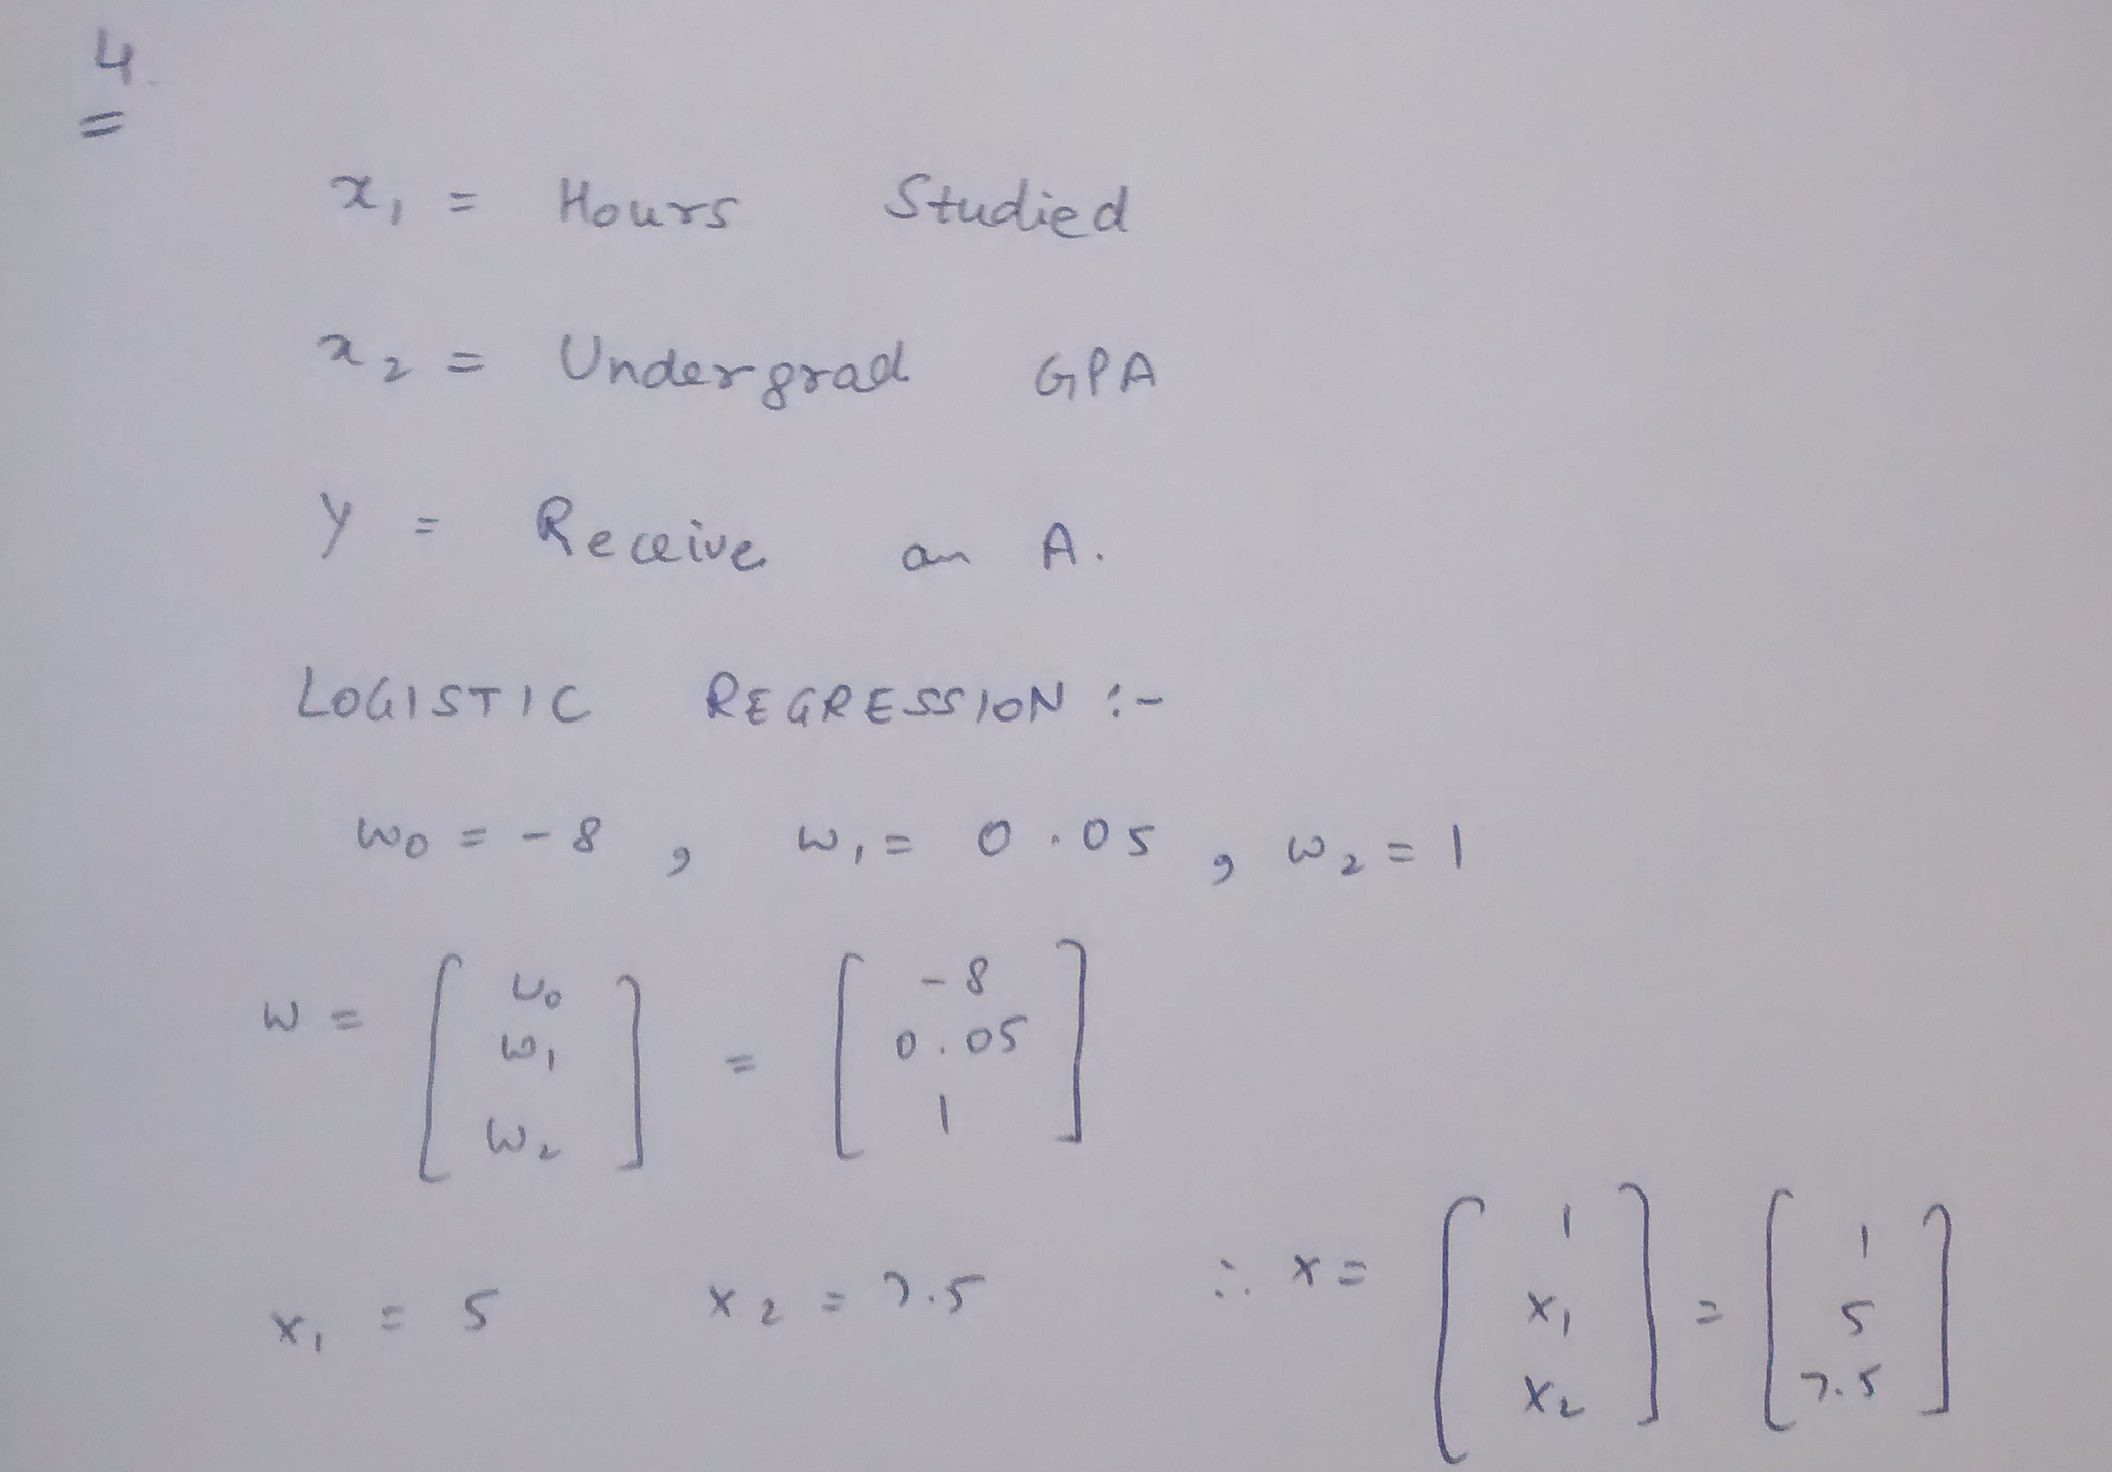 4.
=
x₁ = Hours Studied
x₂ = Undergrad GPA
y = Receive an A.
LOGISTIC REGRESSION :-
w₀ = -8 , w₁ = 0.05 , w₂ = 1
w = [ w₀ w₁ w₂ ] = [ -8 0.05 1 ]
x₁ = 5 x₂ = 7.5 ∴ x = [ 1 x₁ x₂ ] = [ 1 5 7.5 ]